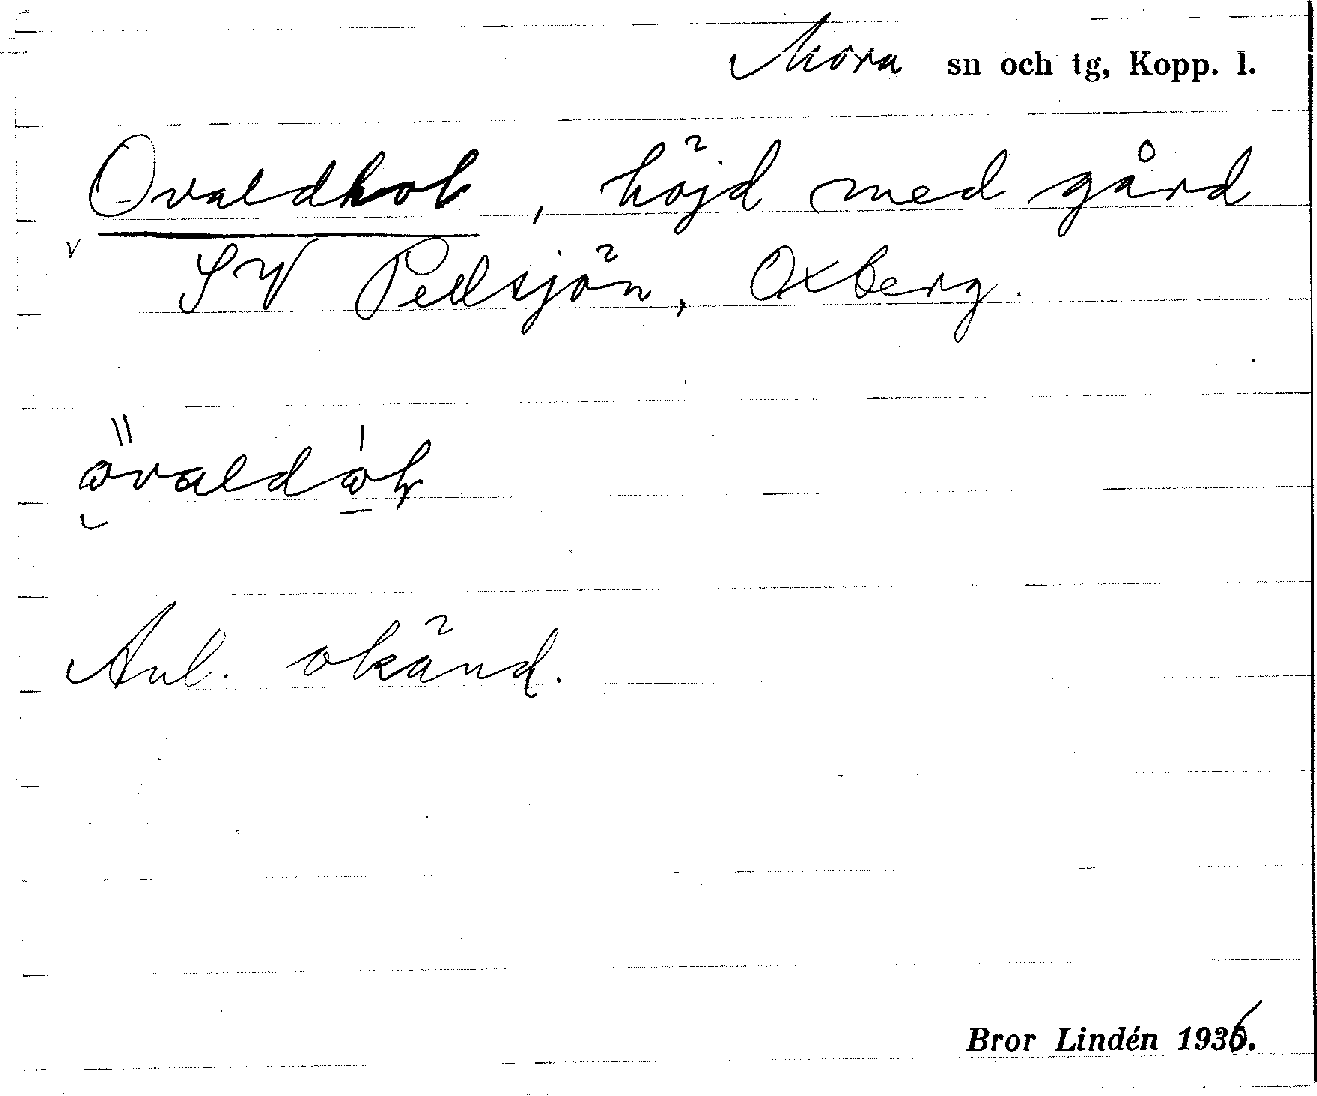 Mora sn och tg, Kopp. l.
Ovaldhol, höjd med gård
v SV Pellsjön, Oxberg.
Anl. okänd.
Bror Lindén 1936.